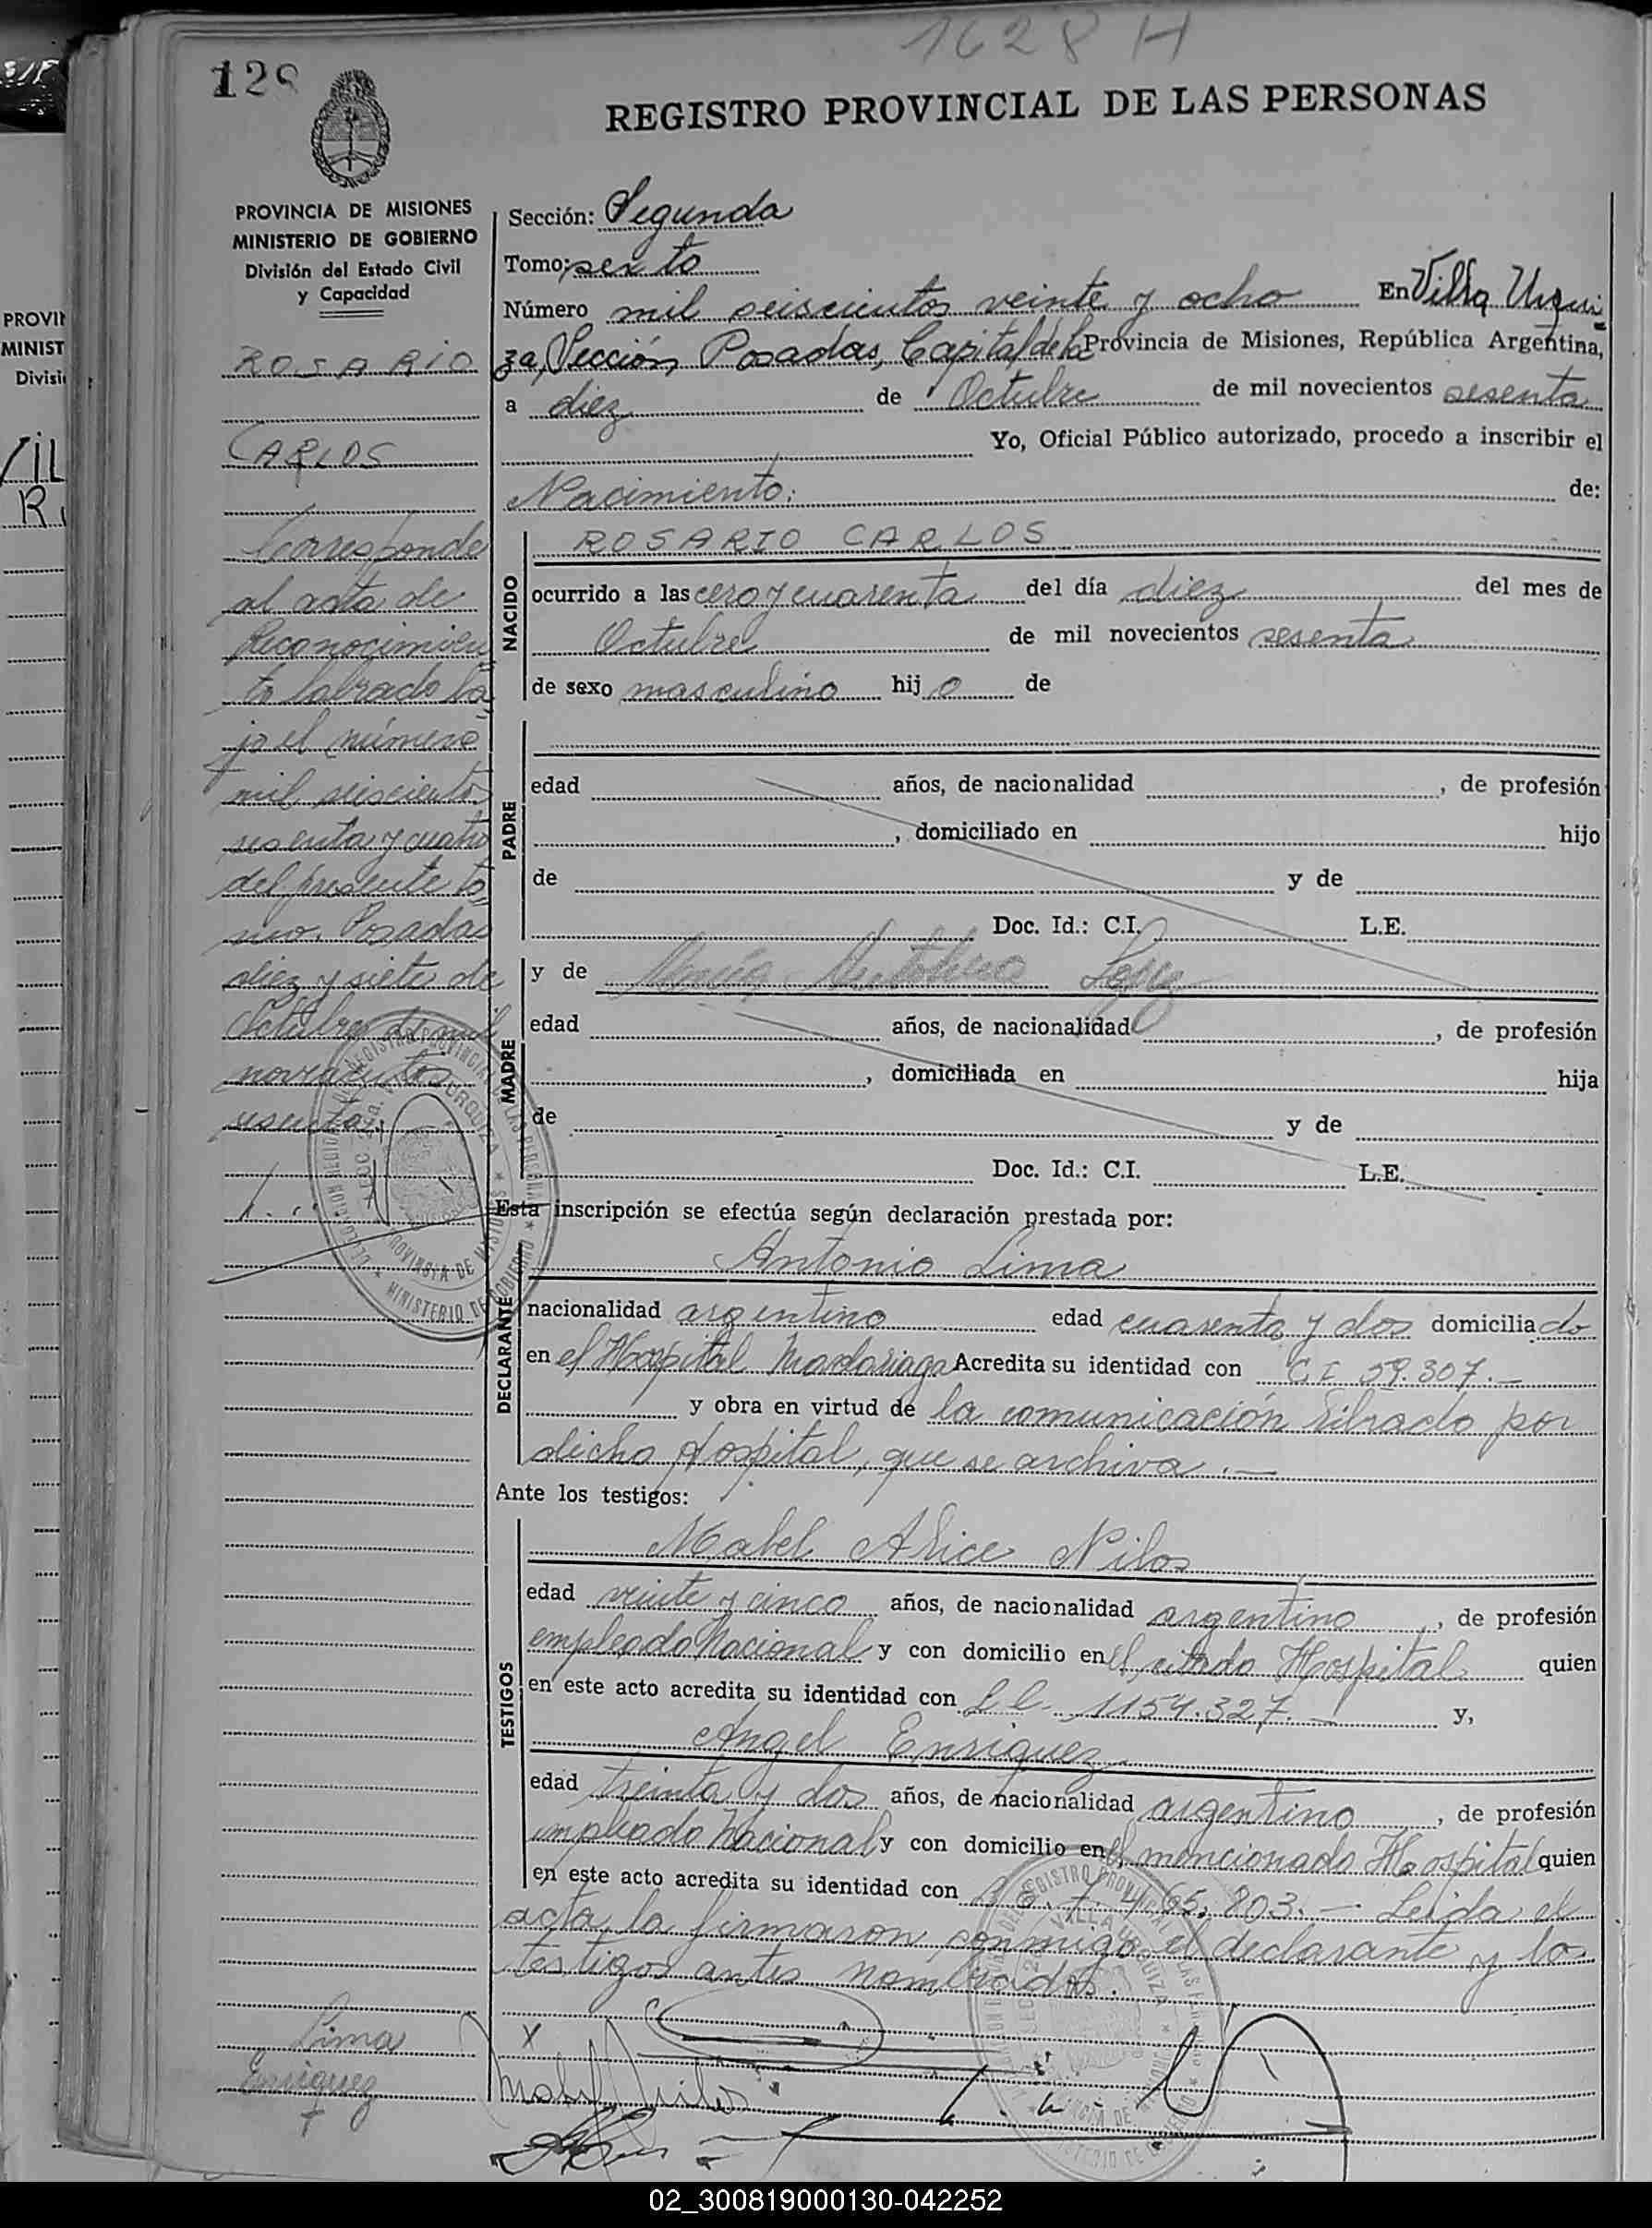 1628 H
128
REGISTRO PROVINCIAL DE LAS PERSONAS
PROVINCIA DE MISIONES
MINISTERIO DE GOBIERNO
División del Estado Civil
y Capacidad
ROSARIO
CARLOS
Corresponde
al acta de
Reconocimien
to labrado ba
jo el número
mil seiscientos
sesenta y cuatro
del presente to
mo. Posadas
diez y siete de
Octubre de mil
novecientos
sesenta.
Sección: Segunda
Tomo: sexto
Número mil seiscientos veinte y ocho En Villa Urqui
za, Sección, Posadas, Capital de la Provincia de Misiones, República Argentina,
a diez de Octubre de mil novecientos sesenta
Yo, Oficial Público autorizado, procedo a inscribir el
Nacimiento: de:
NACIDO
ROSARIO CARLOS
ocurrido a las cero y cuarenta del día diez del mes de
Octubre de mil novecientos sesenta
de sexo masculino hijo de
PADRE
edad años, de nacionalidad , de profesión
, domiciliado en hijo
de y de
Doc. Id.: C.I. L.E.
MADRE
y de María Antolina Lopez
edad años, de nacionalidad , de profesión
, domiciliada en hija
de y de
Doc. Id.: C.I. L.E.
Esta inscripción se efectúa según declaración prestada por:
DECLARANTE
Antonio Lima
nacionalidad argentino edad cuarenta y dos domiciliado
en el Hospital Madariaga Acredita su identidad con C I 59.307.—
y obra en virtud de la comunicación librado por
dicho Hospital, que se archiva.—
Ante los testigos:
TESTIGOS
Mabel Alice Nilos
edad veinte y cinco años, de nacionalidad argentino , de profesión
empleado Nacional y con domicilio en el citado Hospital quien
en este acto acredita su identidad con L C. 1154.327.— y,
Angel Enriquez
edad treinta y dos años, de nacionalidad argentino , de profesión
empleado Nacional y con domicilio en el mencionado Hospital quien
en este acto acredita su identidad con 465.803.— Leida el
acta la firmaron conmigo el declarante y los
testigos antes nombrados.
Lima
Enriquez
X
02_300819000130-042252